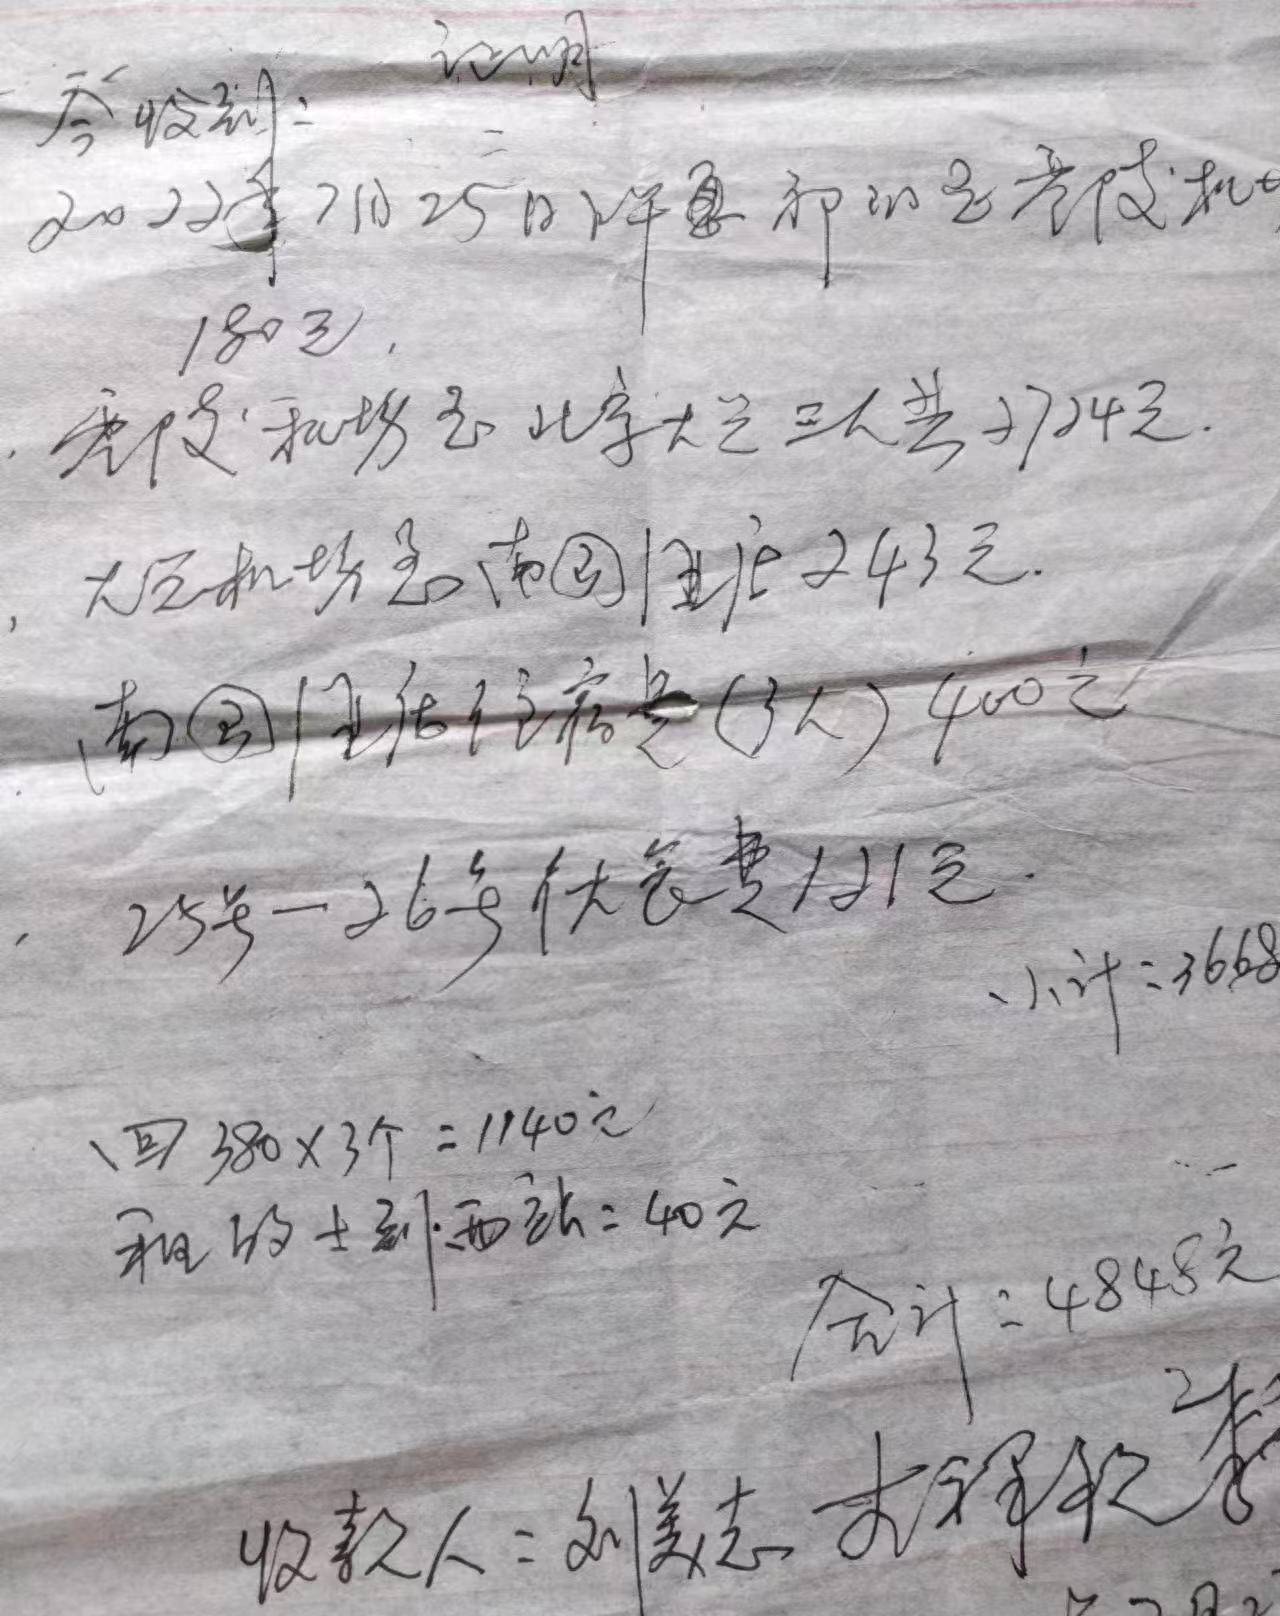 证明
今收到:
2022年7月25日 租的至 机
180元.
机场至北京大兴三人共2724元.
大兴机场至南国 店243元.
南国 店住宿费(3人)400元
25号—26号伙食费121元.
小计:3668
回380×3个=1140元
租的士到西站=40元
合计:4848元
收款人:刘美志 李